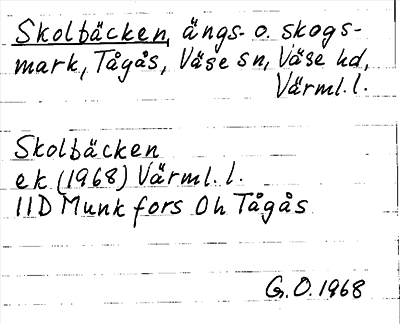 Skolbäcken, ängs- o. skogs-
mark, Tågås, Väse sn, Väse hd,
Värml.l.
Skolbäcken
ek (1968) Värml.l.
11D Munkfors Oh Tågås
G.O.1968